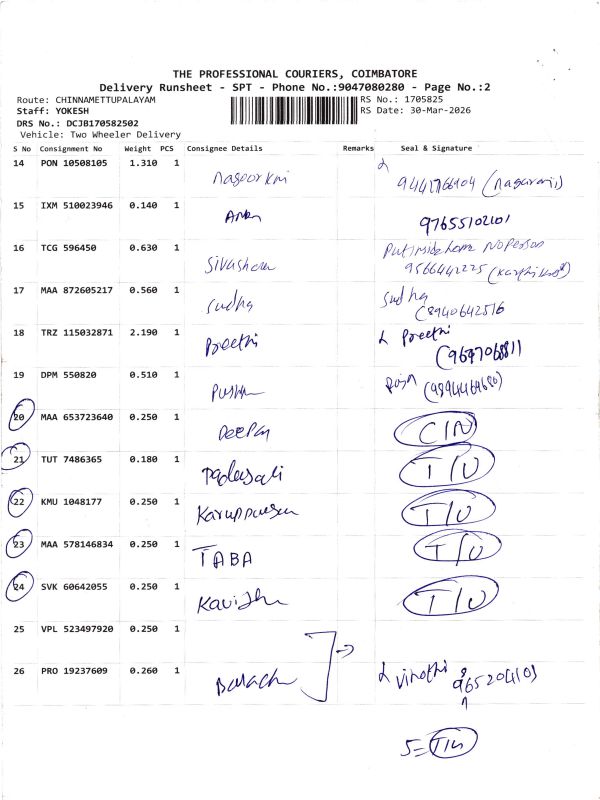 THE PROFESSIONAL COURIERS, COIMBATORE
Delivery Runsheet - SPT - Phone No.:9047080280 - Page No.:2
Route: CHINNAMETTUPALAYAM RS No.: 1705825
Staff: YOKESH RS Date: 30-Mar-2026
DRS No.: DCJB170582502
Vehicle: Two Wheeler Delivery
S No Consignment No Weight PCS Consignee Details Remarks Seal & Signature
14 PON 10508105 1.310 1
15 IXM 510023946 0.140 1 97655102101
16 TCG 596450 0.630 1 No Person
9566442225
17 MAA 872605217 0.560 1 Sudha Sudha
(8940642516
18 TRZ 115032871 2.190 1 Preethi Preethi
19 DPM 550820 0.510 1
20 MAA 653723640 0.250 1 Deepa CIN
21 TUT 7486365 0.180 1 T/U
22 KMU 1048177 0.250 1 T/U
23 MAA 578146834 0.250 1 TABA T/U
24 SVK 60642055 0.250 1 T/U
25 VPL 523497920 0.250 1
26 PRO 19237609 0.260 1 Vinothi
5=